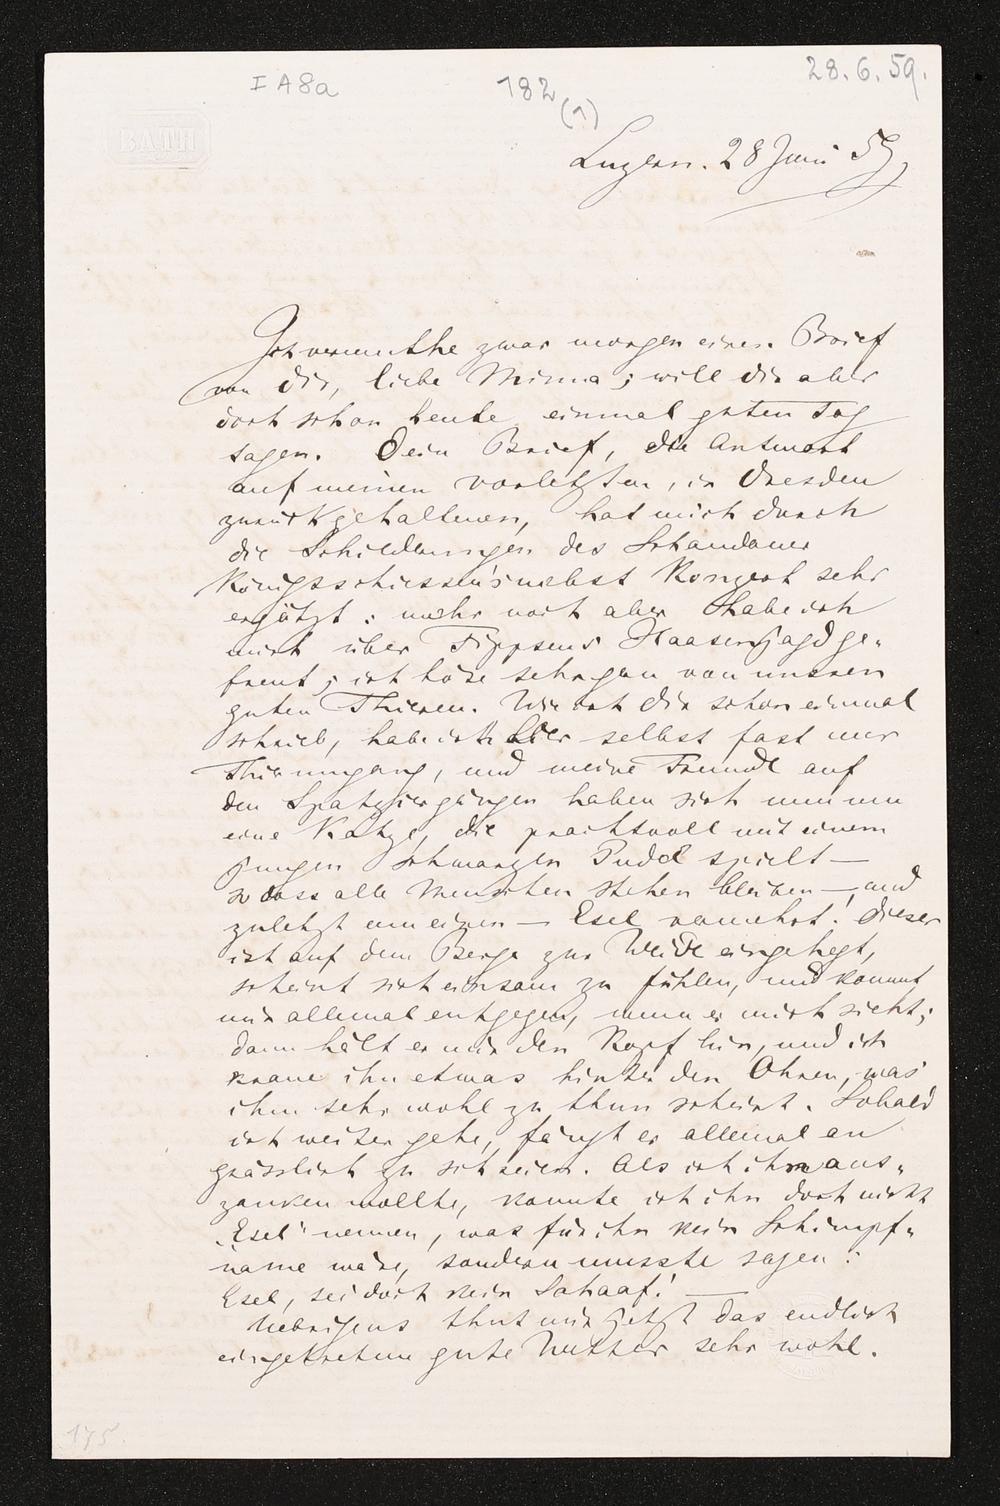 28.6.59.
I A 8a
182
(1)
BATH
Luzern. 28 Juni 59,
Ich vermuthe zwar morgen einen Brief
von dir, liebe Minna; will dir aber
doch schon heute einmal guten Tag
sagen. Dein Brief, die Antwort
auf meinen vorletzten, in Dresden
zurückgehaltenen, hat mich durch
die Schilderungen des Schandauer
Königsschiessen's nebst Konzert sehr
ergötzt: mehr noch aber habe ich
mich über Fippsens Haasenjagd ge-
freut; ich höre sehr gern von unseren
guten Thieren. Wie ich dir schon einmal
schrieb, habe ich hier selbst fast nur
Thierumgang, und meine Freunde auf
den Spatziergängen haben sich nun um
eine Katze, die prachtvoll mit einem
jungen schwarzen Pudel spielt —
so dass alle Menschen stehen bleiben —, und
zuletzt um einen — Esel vermehrt! Dieser
ist auf dem Berge zur Weide eingehegt,
scheint sich einsam zu fühlen, und kommt
mir allemal entgegen, wenn er mich sieht;
dann hält er mir den Kopf hin, und ich
kraue ihn etwas hinter den Ohren, was
ihm sehr wohl zu thun scheint. Sobald
ich weiter gehe, fängt er allemal an
grässlich zu schreien. Als ich ihn aus-
zanken wollte, konnte ich ihn doch nicht
"Esel" nennen, was für ihn kein Schimpf-
name wäre, sondern musste sagen:
Esel, sei doch kein Schaaf! —
Uebrigens thut mir jetzt das endlich
eingetretene gute Wetter sehr wohl.
175.